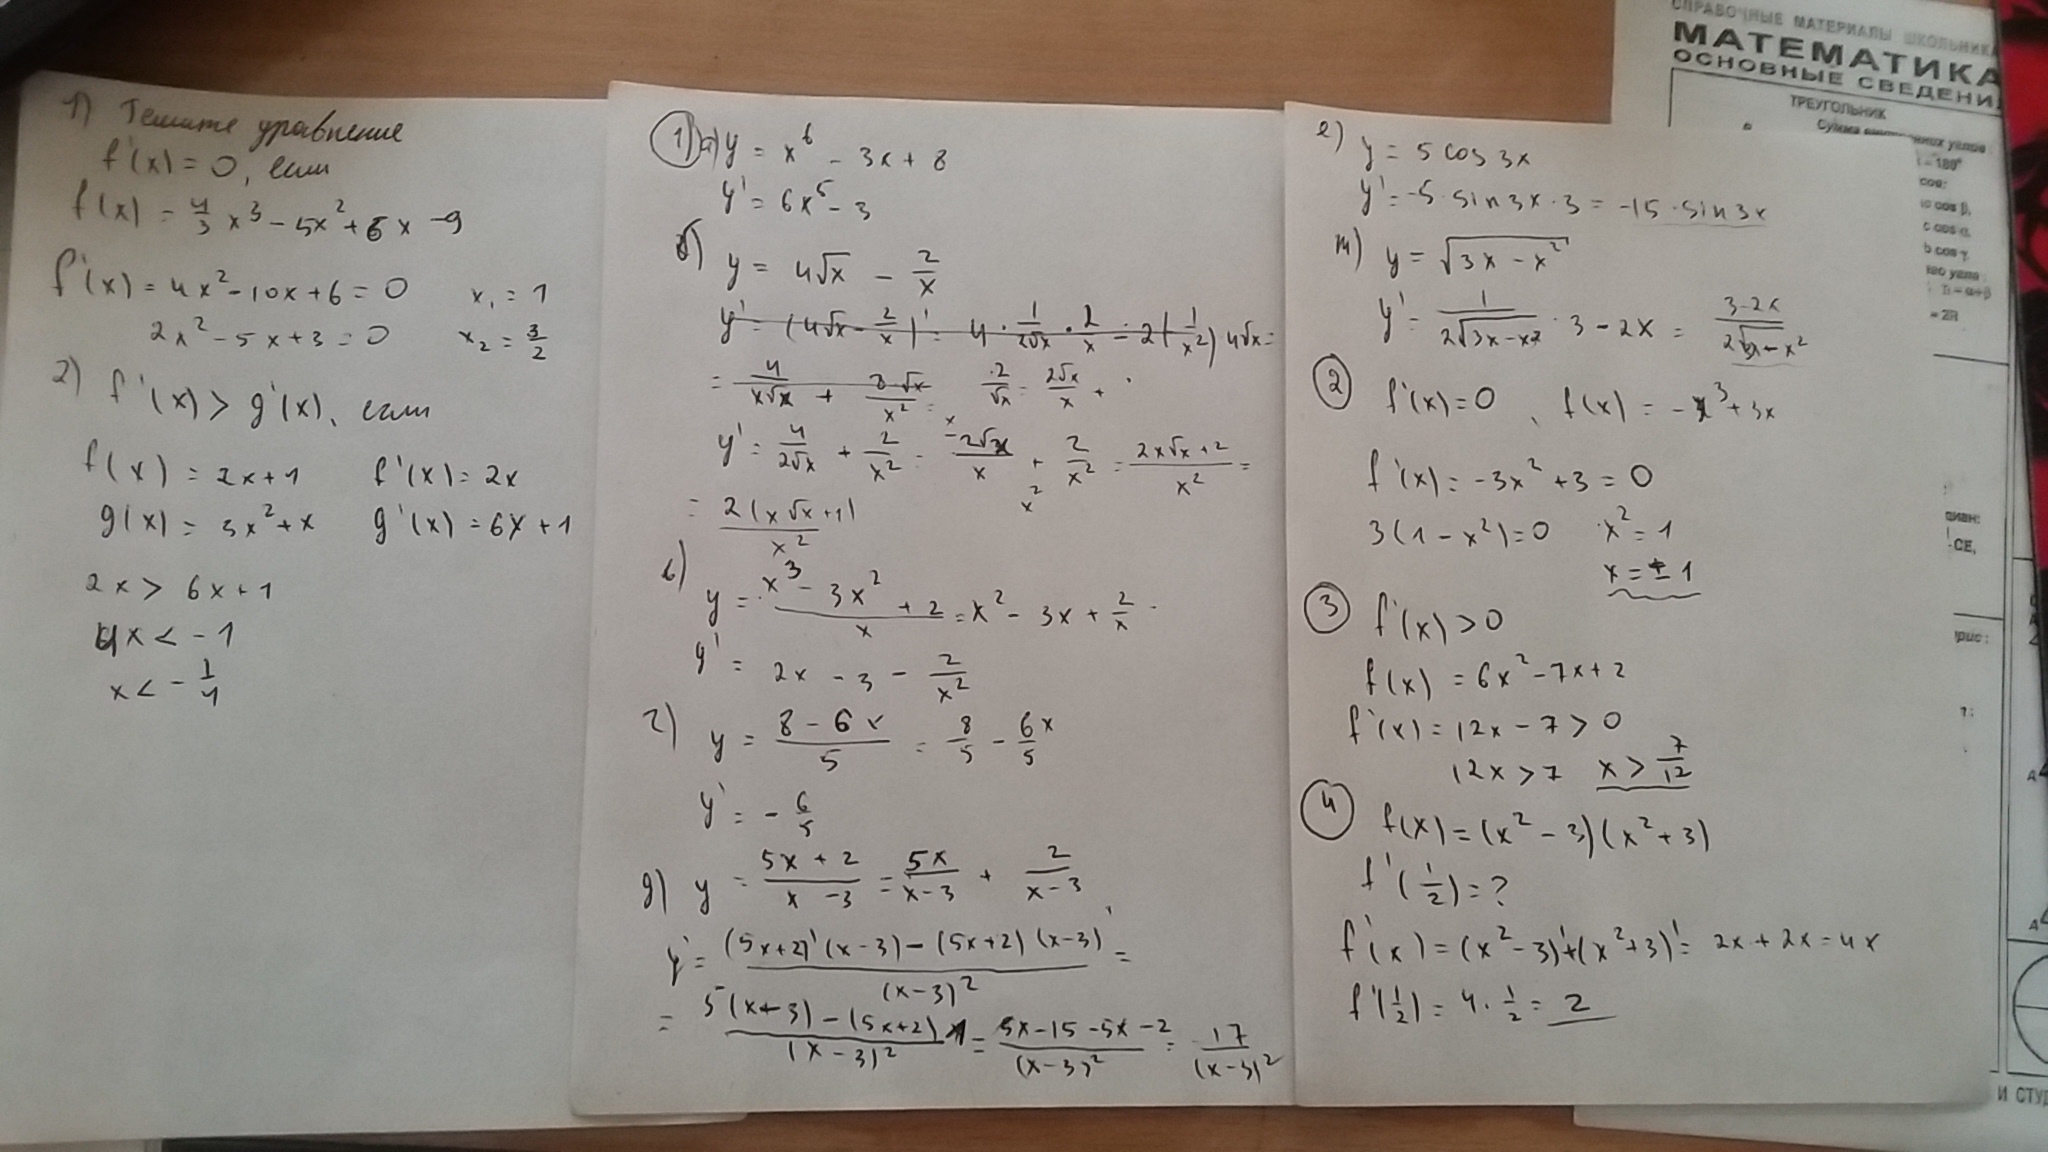 1) Решите уравнение
f'(x) = 0, если
f(x) = 4/3 x³ - 5x² + 6x - 9
f'(x) = 4x² - 10x + 6 = 0   x₁ = 1
2x² - 5x + 3 = 0   x₂ = 3/2
2) f'(x) > g'(x), если
f(x) = 2x + 1   f'(x) = 2x
g(x) = 3x² + x   g'(x) = 6x + 1
2x > 6x + 1
4x < - 1
x < - 1/4
1) а) y = x⁶ - 3x + 8
y' = 6x⁵ - 3
б) y = 4√x - 2/x
y' = (4√x - 2/x)' = 4 · 1/2√x · 2/x - 2(1/x²) 4√x =
y' = 4/2√x + 2/x² = 2√x/x + 2/x² = 2x√x + 2/x² =
= 2(x√x + 1)/x²
в) y = x³ - 3x² + 2/x = x² - 3x + 2/x
y' = 2x - 3 - 2/x²
г) y = 8 - 6x/5 = 8/5 - 6x/5
y' = - 6/5
д) y = 5x + 2/x - 3 = 5x/x - 3 + 2/x - 3
y' = (5x+2)'(x-3) - (5x+2)(x-3)'/(x-3)² =
= 5(x-3) - (5x+2) 1/(x-3)² = 5x - 15 - 5x - 2/(x-3)² = - 17/(x-3)²
е) y = 5 cos 3x
y' = -5 · sin 3x · 3 = -15 · sin 3x
ж) y = √3x - x²
y' = 1/2√3x-x² · 3 - 2x = 3-2x/2√3x-x²
2 f'(x) = 0, f(x) = -x³ + 3x
f'(x) = -3x² + 3 = 0
3(1 - x²) = 0   x² = 1
x = ± 1
3 f'(x) > 0
f(x) = 6x² - 7x + 2
f'(x) = 12x - 7 > 0
12x > 7   x > 7/12
4 f(x) = (x² - 3)(x² + 3)
f'(1/2) = ?
f'(x) = (x² - 3)' + (x² + 3)' = 2x + 2x = 4x
f'(1/2) = 4 · 1/2 = 2
СПРАВОЧНЫЕ МАТЕРИАЛЫ ШКОЛЬНИКА
МАТЕМАТИКА
ОСНОВНЫЕ СВЕДЕНИ
ТРЕУГОЛЬНИК
Сумма
углов
= 180°
cos β,
c cos α,
b cos γ.
= 2R
CE,
И СТУД